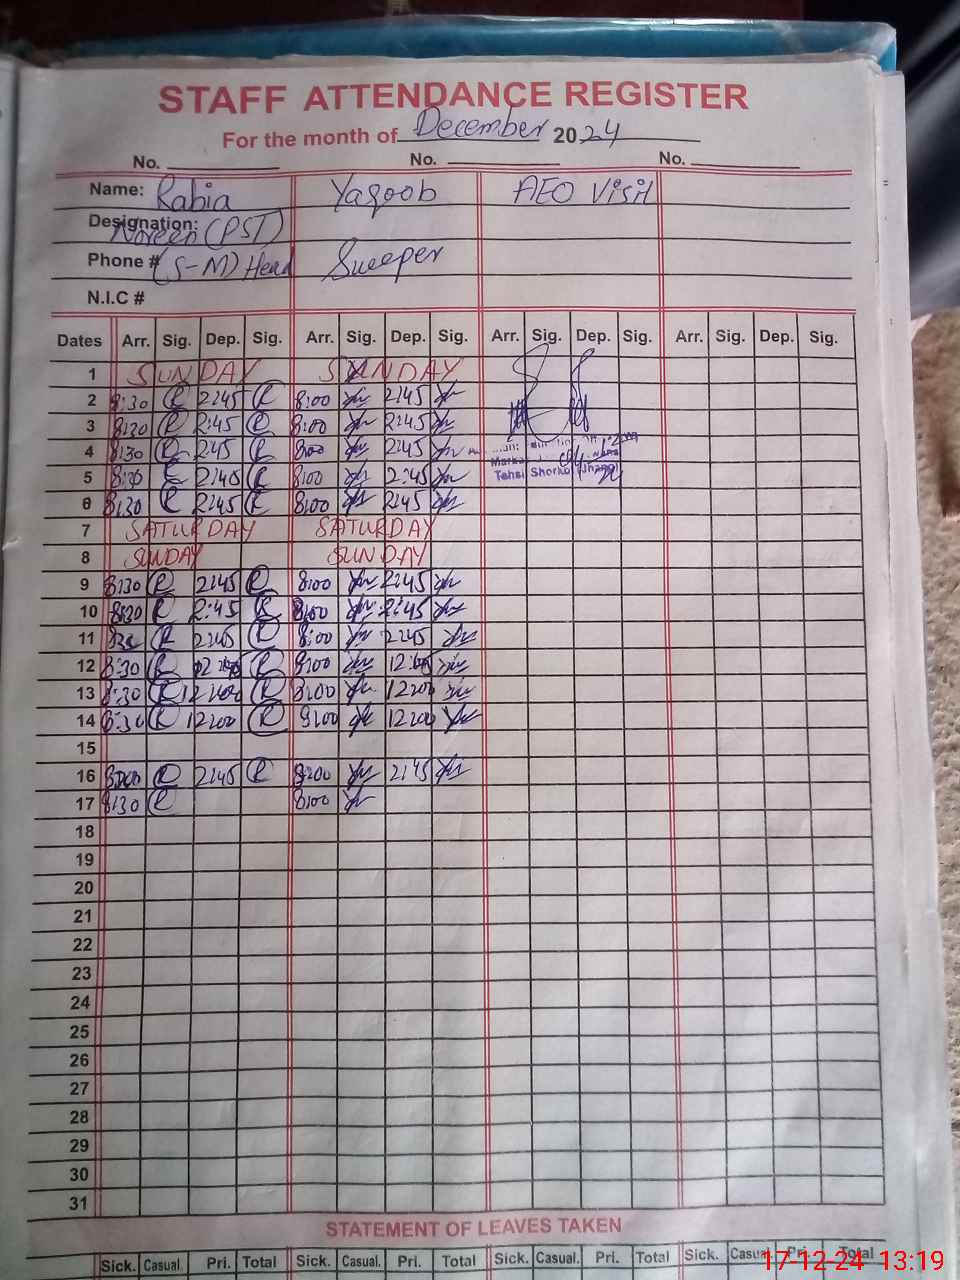 STAFF ATTENDANCE REGISTER
For the month of December 2024
No. No. No.
Name: Rabia Yaqoob AEO Visit
Designation: Noreen (PST)
Phone # (S-M) Head Sweeper
N.I.C #
Dates Arr. Sig. Dep. Sig. Arr. Sig. Dep. Sig. Arr. Sig. Dep. Sig. Arr. Sig. Dep. Sig.
1 SUNDAY SUNDAY
2 8:30 R 2:45 R 8:00 2:45
3 8:30 R 2:45 R 8:00 2:45
4 8:30 R 2:45 R 8:00 2:45
5 8:30 R 2:45 R 8:00 2:45
Tehsil Shorkot Jhang
6 8:30 R 2:45 R 8:00 2:45
7 SATURDAY SATURDAY
8 SUNDAY SUNDAY
9 8:30 R 2:45 R 8:00 2:45
10 8:30 R 2:45 R 8:00 2:45
11 8:30 R 2:45 R 8:00 2:45
12 8:30 R R 8:00
13 8:30 R 12:00 R 8:00 12:00
14 8:30 R 12:00 R 12:00
15
16 R 2:45 R 2:45
17 8:30 R 8:00
18
19
20
21
22
23
24
25
26
27
28
29
30
31
STATEMENT OF LEAVES TAKEN
Sick. Casual. Pri. Total Sick. Casual. Pri. Total Sick. Casual. Pri. Total Sick. Casual. Pri. Total
17-12-24 13:19